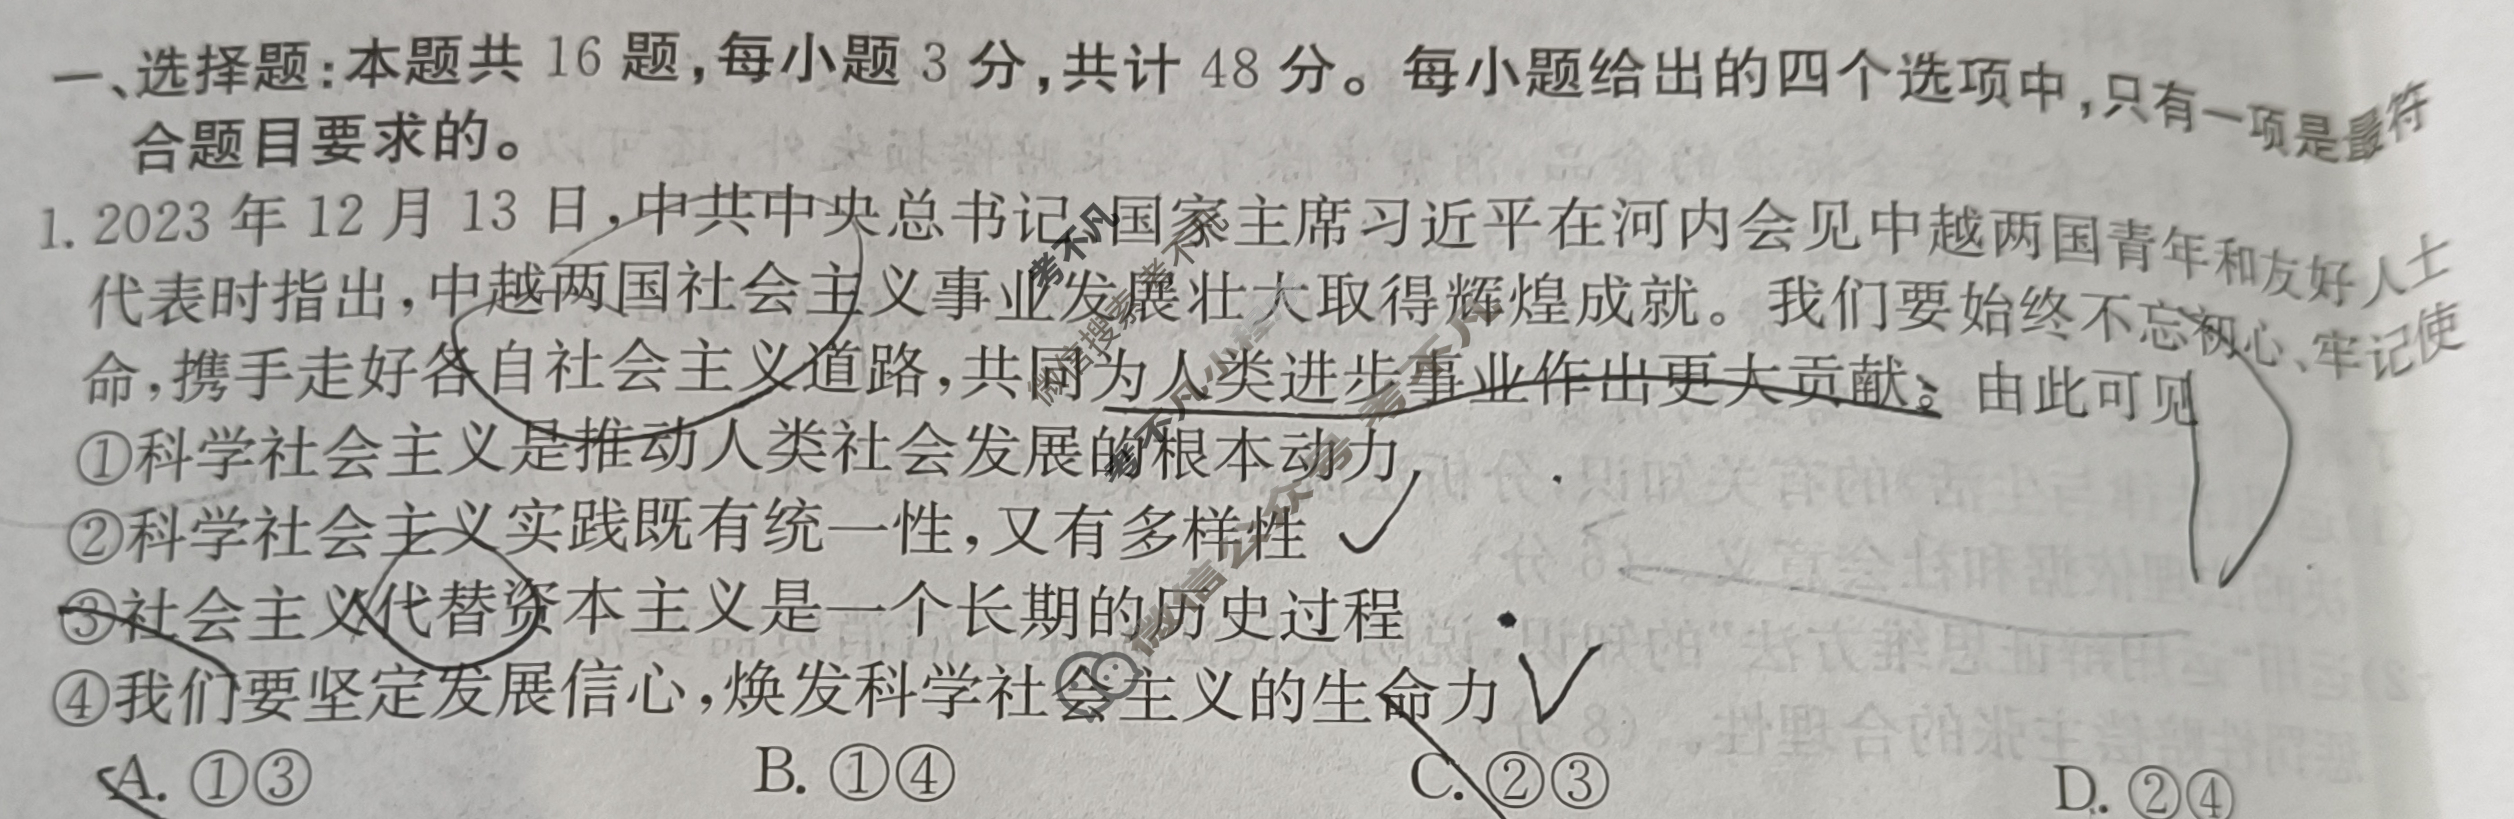 一、选择题:本题共 16 题,每小题 3 分,共计 48 分。每小题给出的四个选项中,只有一项是最符
合题目要求的。
1. 2023 年 12 月 13 日,中共中央总书记、国家主席习近平在河内会见中越两国青年和友好人士
代表时指出,中越两国社会主义事业发展壮大取得辉煌成就。我们要始终不忘初心、牢记使
命,携手走好各自社会主义道路,共同为人类进步事业作出更大贡献。由此可见
①科学社会主义是推动人类社会发展的根本动力
②科学社会主义实践既有统一性,又有多样性
③社会主义代替资本主义是一个长期的历史过程
④我们要坚定发展信心,焕发科学社会主义的生命力
A. ①③ B. ①④ C. ②③ D. ②④
考不凡
考不凡
微信搜索
考不凡小程序
微信公众号 考不凡